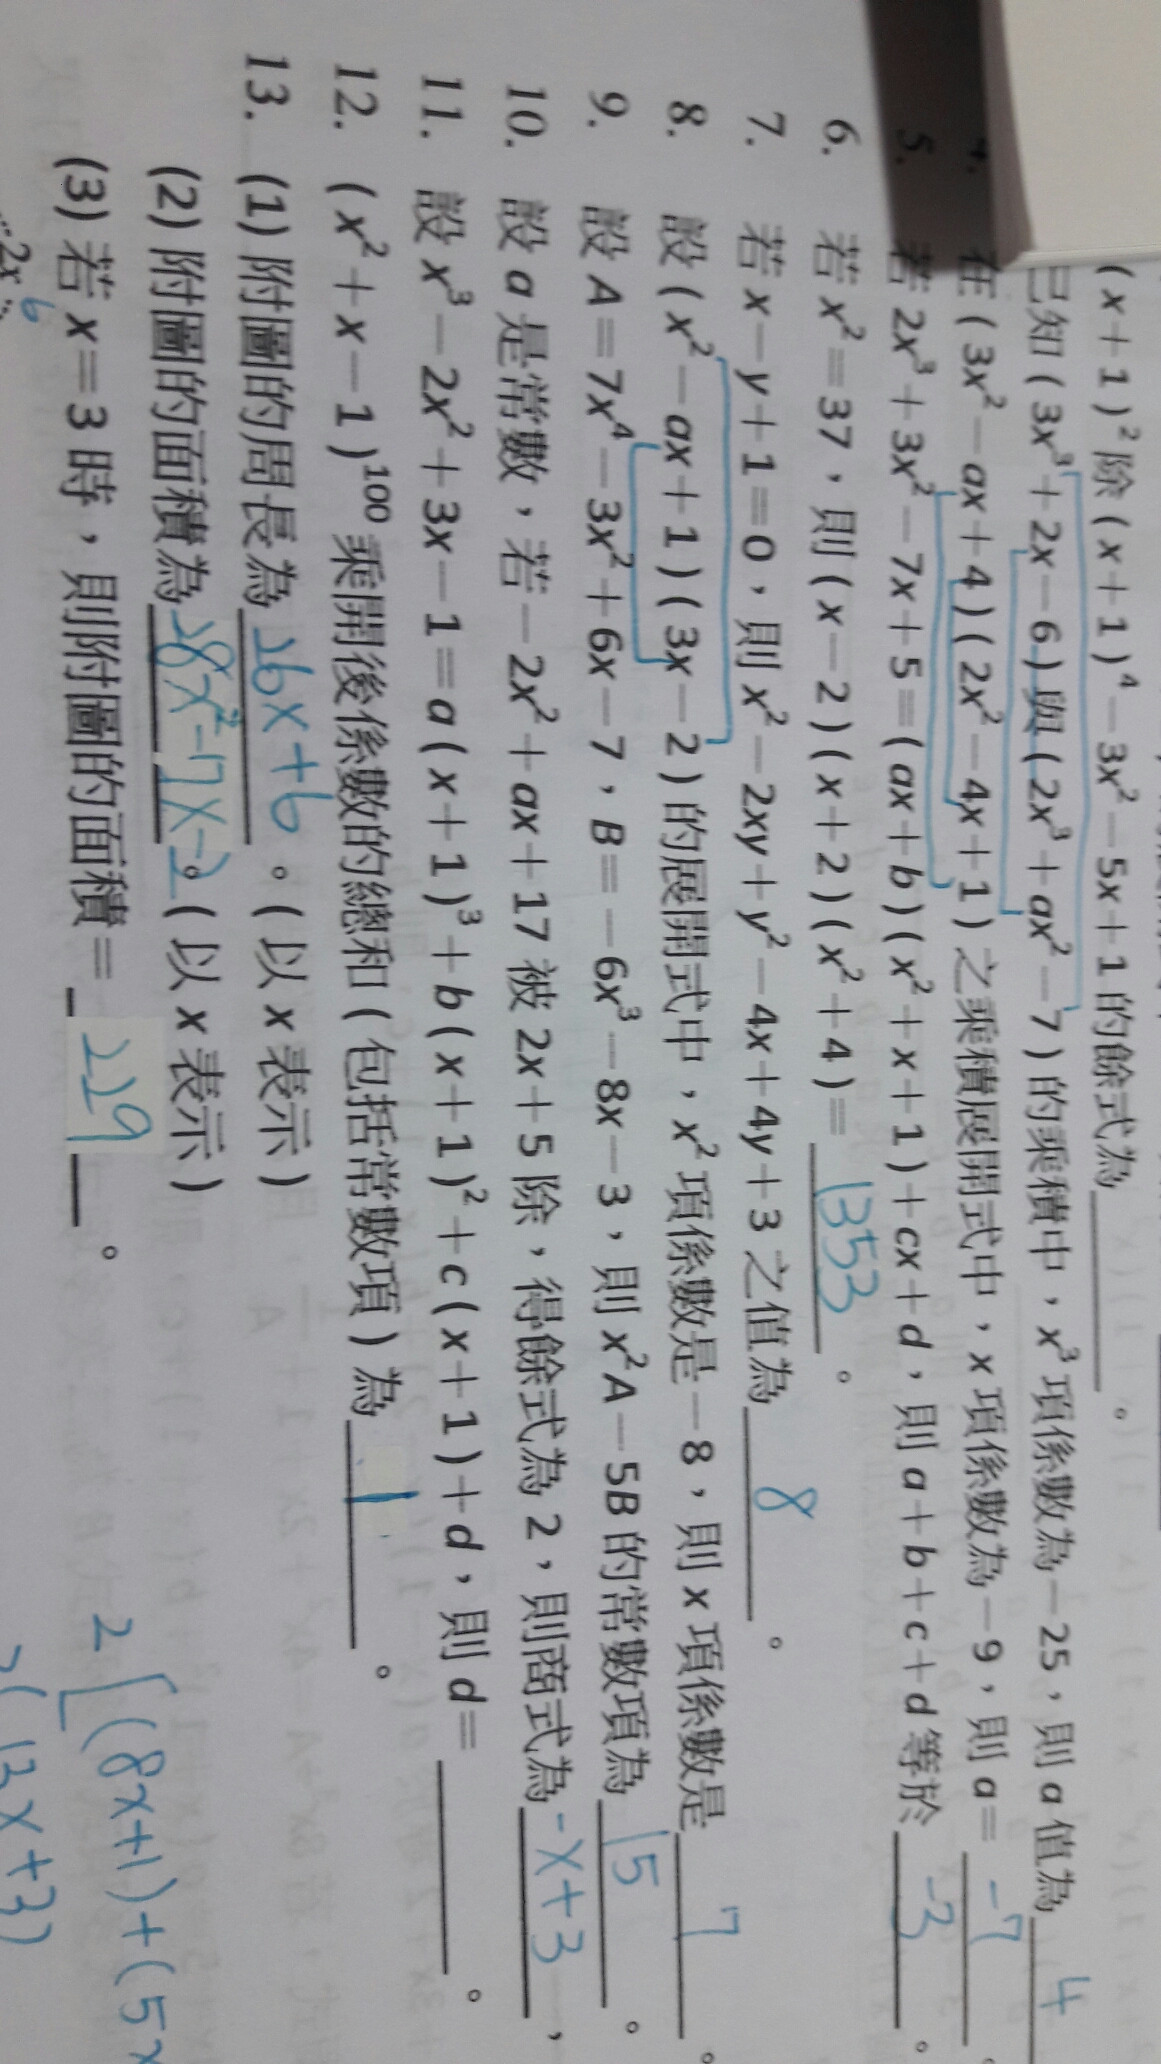 (x+1)²除(x+1)⁴－3x²－5x+1的餘式為______。
已知(3x³+2x－6)與(2x³+ax²－7)的乘積中，x³項係數為－25，則a值為 4
4. 在(3x²－ax+4)(2x²－4x+1)之乘積展開式中，x項係數為－9，則a= -7
5. 若2x³+3x²－7x+5=(ax+b)(x²+x+1)+cx+d，則a+b+c+d等於 -3 。
6. 若x²=37，則(x－2)(x+2)(x²+4)= 1353 。
7. 若x－y+1=0，則x²－2xy+y²－4x+4y+3之值為 8 。
8. 設(x²－ax+1)(3x－2)的展開式中，x²項係數是－8，則x項係數是 7 。
9. 設A=7x⁴－3x²+6x－7，B=－6x³－8x－3，則x²A－5B的常數項為 15 。
10. 設a是常數，若－2x²+ax+17被2x+5除，得餘式為2，則商式為 -x+3 ，
11. 設x³－2x²+3x－1=a(x+1)³+b(x+1)²+c(x+1)+d，則d=______。
12. (x²+x－1)¹⁰⁰乘開後係數的總和(包括常數項)為 1 。
13. (1)附圖的周長為 26x+6 。(以x表示)
(2)附圖的面積為 28x²-7x-2 。(以x表示)
(3)若x=3時，則附圖的面積= 229 。
2[(8x+1)+(5x
2(13x+3)
6